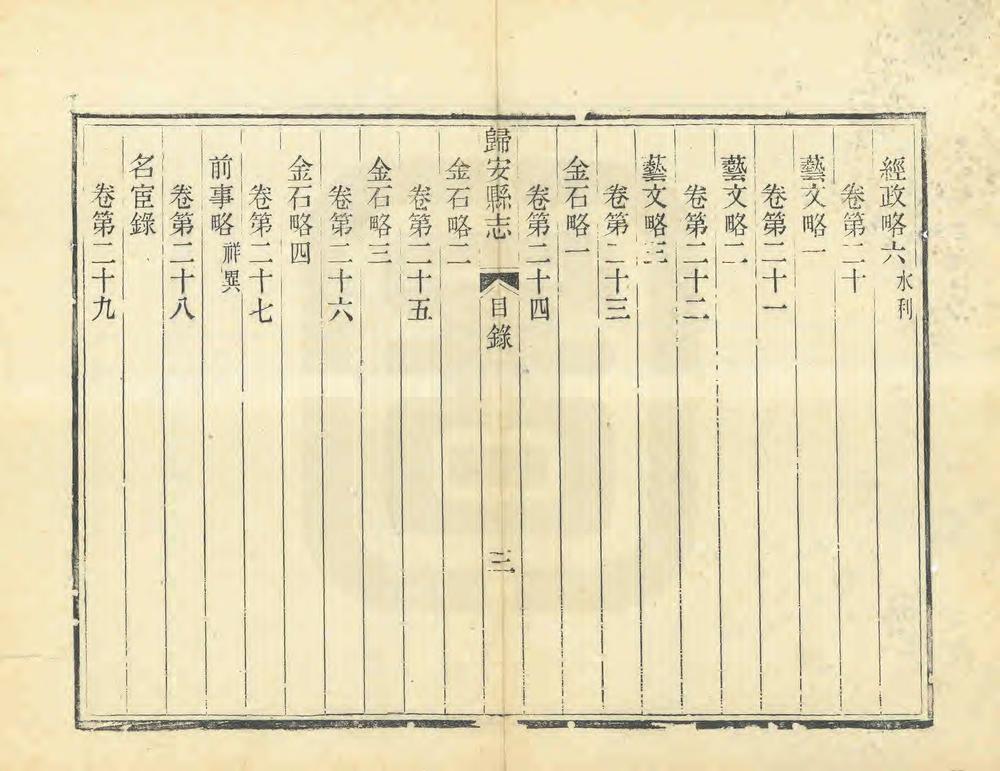 經政略六 水利
卷第二十
藝文略一
卷第二十一
藝文略二
卷第二十二
藝文略三
卷第二十三
金石略一
卷第二十四
歸安縣志 目錄 三
金石略二
卷第二十五
金石略三
卷第二十六
金石略四
卷第二十七
前事略 祥異
卷第二十八
名宦錄
卷第二十九